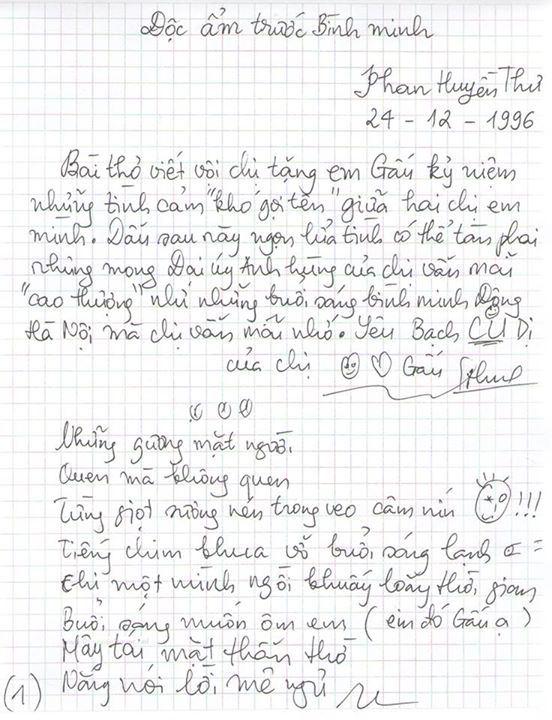 Độc ẩm trước Bình minh
Phan Huyền Thư
24 - 12 - 1996
Bài thơ viết vội chị tặng em Gấu kỷ niệm
những tình cảm "khó gọi tên" giữa hai chị em
mình. Dẫu sau này ngọn lửa tình có thể tàn phai
nhưng mong Đại úy Anh hùng của chị vẫn mãi
"cao thượng" như những buổi sáng bình minh Đông
Hà Nội mà chị vẫn mãi nhớ. Yêu Bạch CU Dị
của chị Gấu
Những gương mặt người
Quen mà không quen
Từng giọt sương nén trong veo câm nín !!!
Tiếng chim khua vỡ buổi sáng lạnh
Chỉ một mình ngồi khuấy loãng thời gian
Buổi sáng muốn ôm em (em đó Gấu ạ)
Mây tái mặt thẫn thờ
(1) Nắng nói lời mê ngủ